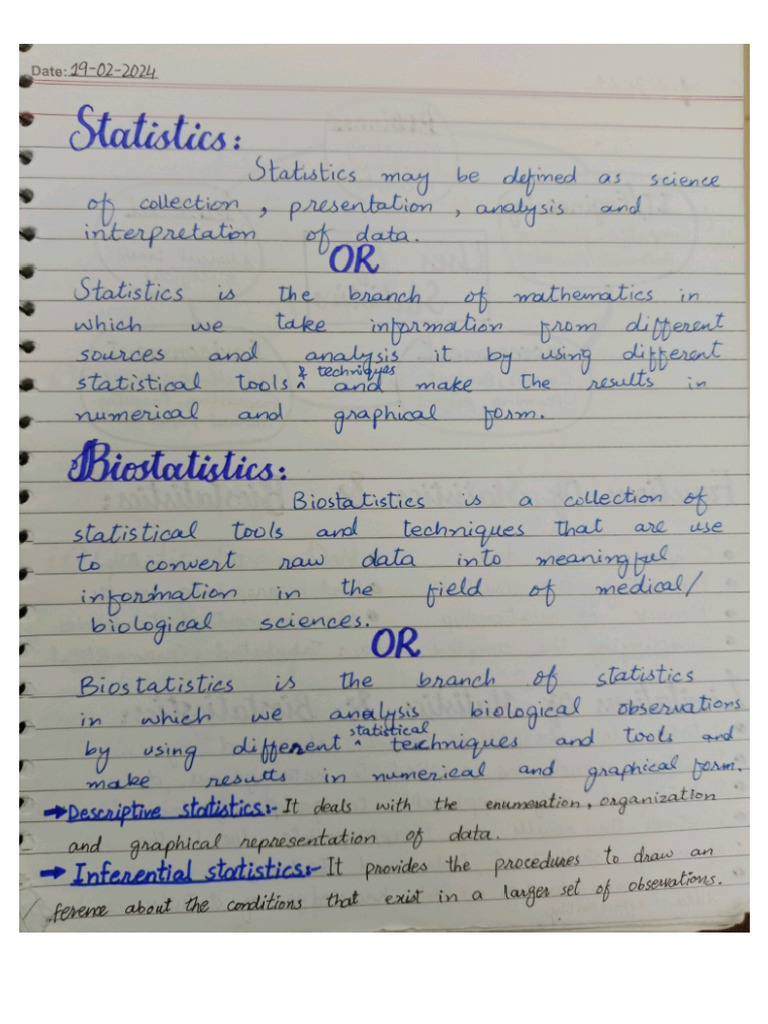 Date: 19-02-2024
Statistics:
Statistics may be defined as science
of collection, presentation, analysis and
interpretation of data.
OR
Statistics is the branch of mathematics in
which we take information from different
sources and analysis it by using different
statistical tools & techniques and make the results in
numerical and graphical form.
Biostatistics:
Biostatistics is a collection of
statistical tools and techniques that are use
to convert raw data into meaningful
information in the field of medical/
biological sciences.
OR
Biostatistics is the branch of statistics
in which we analysis biological observations
by using different statistical techniques and tools and
make results in numerical and graphical form.
→Descriptive statistics:- It deals with the enumeration, organization
and graphical representation of data.
→ Inferential statistics:- It provides the procedures to draw an
ference about the conditions that exist in a larger set of observations.